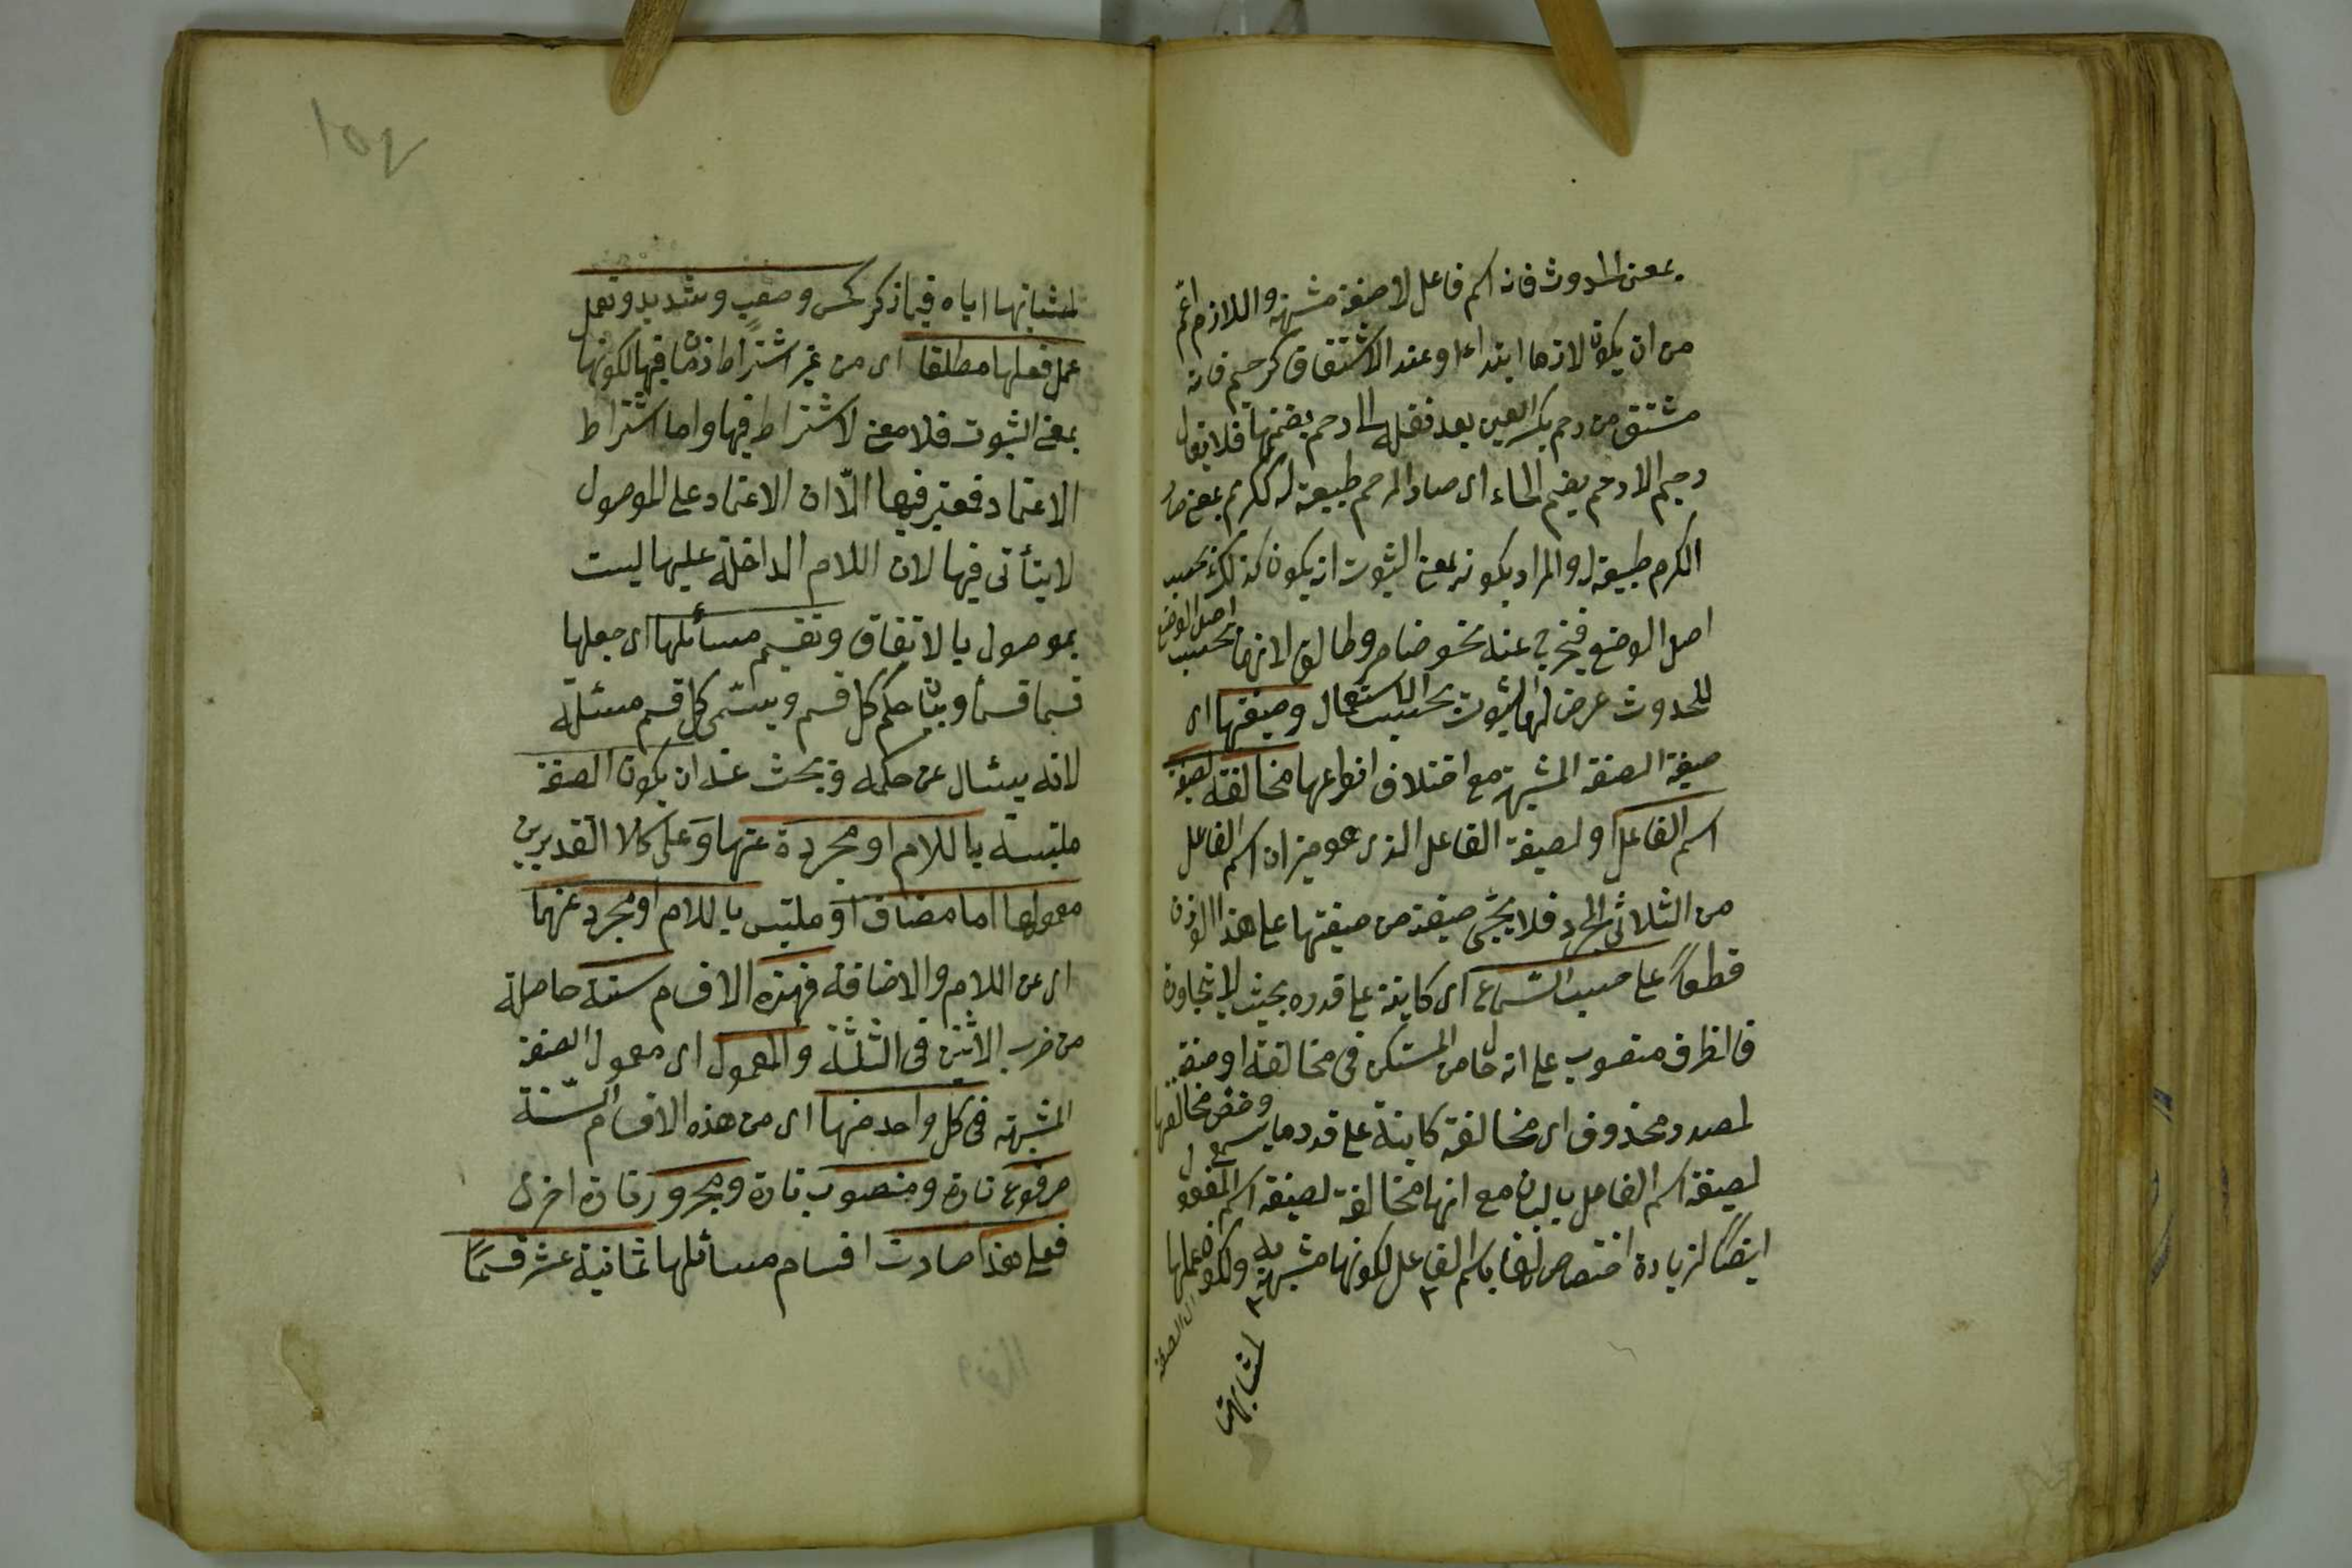 بمعنى الحدوث فانه اسم فاعل لا صفة مشبهة واللازم اعم
من ان يكون لازما ابتداء او عند الاشتقاق كرحيم فانه
مشتق من رحم بكسر العين بعد نقله الى رحم بضمها فلا يقال
رحيم الا من رحم بضم الحاء اى صار الرحم طبيعة له ككرم بمعنى صار
الكرم طبيعة له والمراد بكونه بمعنى الثبوت انه يكون كذلك بحسب
اصل الوضع فيخرج عنه نحو ضامر وطالق لانهما بحسب اصل الوضع
للحدوث عرض لهما الثبوت بحسب الاستعمال وصيغتها اى
صيغة الصفة المشبهة مع اختلاف انواعها مخالفة لصيغة
اسم الفاعل او لصيغة الفاعل الذى هو ميزان اسم الفاعل
من الثلاثى المجرد فلا يجئ صيغة من صيغتها على هذا الوزن
قطعاً على حسب السماع اى كاينة على قدره بحيث لا يتجاوزن
فالظرف منصوب على انه حال من المستكن فى مخالفة او صفة
لمصدر محذوف اى مخالفة كاينة على قدر ما يسمع وخص مخالفتها
لصيغة اسم الفاعل بالبيان مع انها مخالفة لصيغة اسم المفعول
ايضاً لزيادة اختصاص لها باسم الفاعل لكونها مشبهة به ولكون عملها
لمشابهتها
اى الصفة
١٥٢
لمشابهتها اياه فيما ذكر كحسن وصعب وشديد وتعمل
عمل فعلها مطلقا اى من غير اشتراط زمان فيها لكونها
بمعنى الثبوت فلا معنى لاشتراط فيها واما اشتراط
الاعتماد فمعتبر فيها الّا ان الاعتماد على الموصول
لا يتأتى فيها لان اللام الداخلة عليها ليست
بموصول بالاتفاق وتقسيم مسائلها اى جعلها
قسما قسما وبيان حكم كل قسم ويسمّى كل قسم مسئلة
لانه يسئال عن حكمه ويبحث عنه ان يكون الصفة
ملتبسة باللام او مجردة عنها وعلى كلا التقديرين
معمولها اما مضاف او ملتبس باللام او مجرد عنهما
اى عن اللام والاضافة فهذه الاقسام ستة حاصلة
من ضرب الاثنين فى الثلثة والمعمول اى معمول الصفة
المشبهة فى كل واحد منها اى من هذه الاقسام الستّة
مرفوع تارة ومنصوب تارة ومجرور تارة اخرى
فعلى هذا صارت اقسام مسائلها ثمانية عشر قسمًا